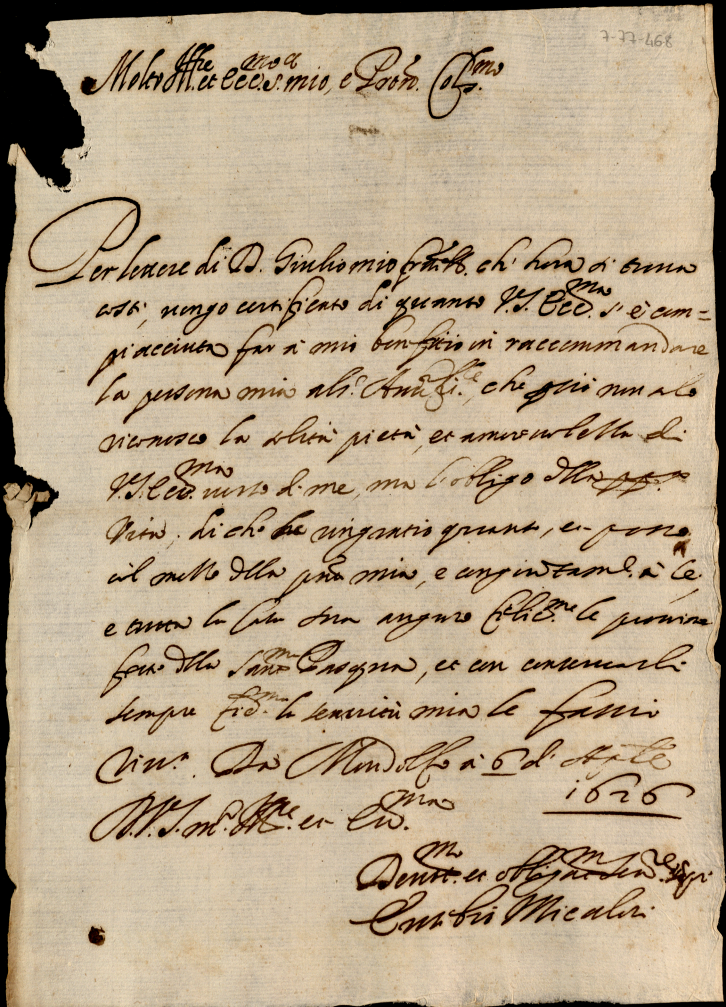 7-77-468
Molto Ill.re et Ecc.mo S.r mio, e Pron. Col.mo
Per lettere di D. Giulio mio fratello ch' hora si trova
costì, vengo certificato di quanto V.S. Ecc.ma s' è com=
piacciuta far à mio benefitio in raccommandare
la persona mia all', che più non solo
riconosco la solita pietà, et amorevolezza di
V.S. Ecc.ma verso di me, ma l'obligo della
vita, di che la ringratio quanto, et posso
col mezzo della pnte mia, e congiuntam.e à lei
e tutta la Casa sua auguro felic.me le prossime
feste della Sant.ma Pasqua, et con conservarli
sempre la servitù mia le faccio
riv.a Da Mondolfo à 6 di Aprile
1626
D. V. S. m.to Ill.re et Ecc.ma
Devot.mo et obligat.mo Ser.re
Micaleri